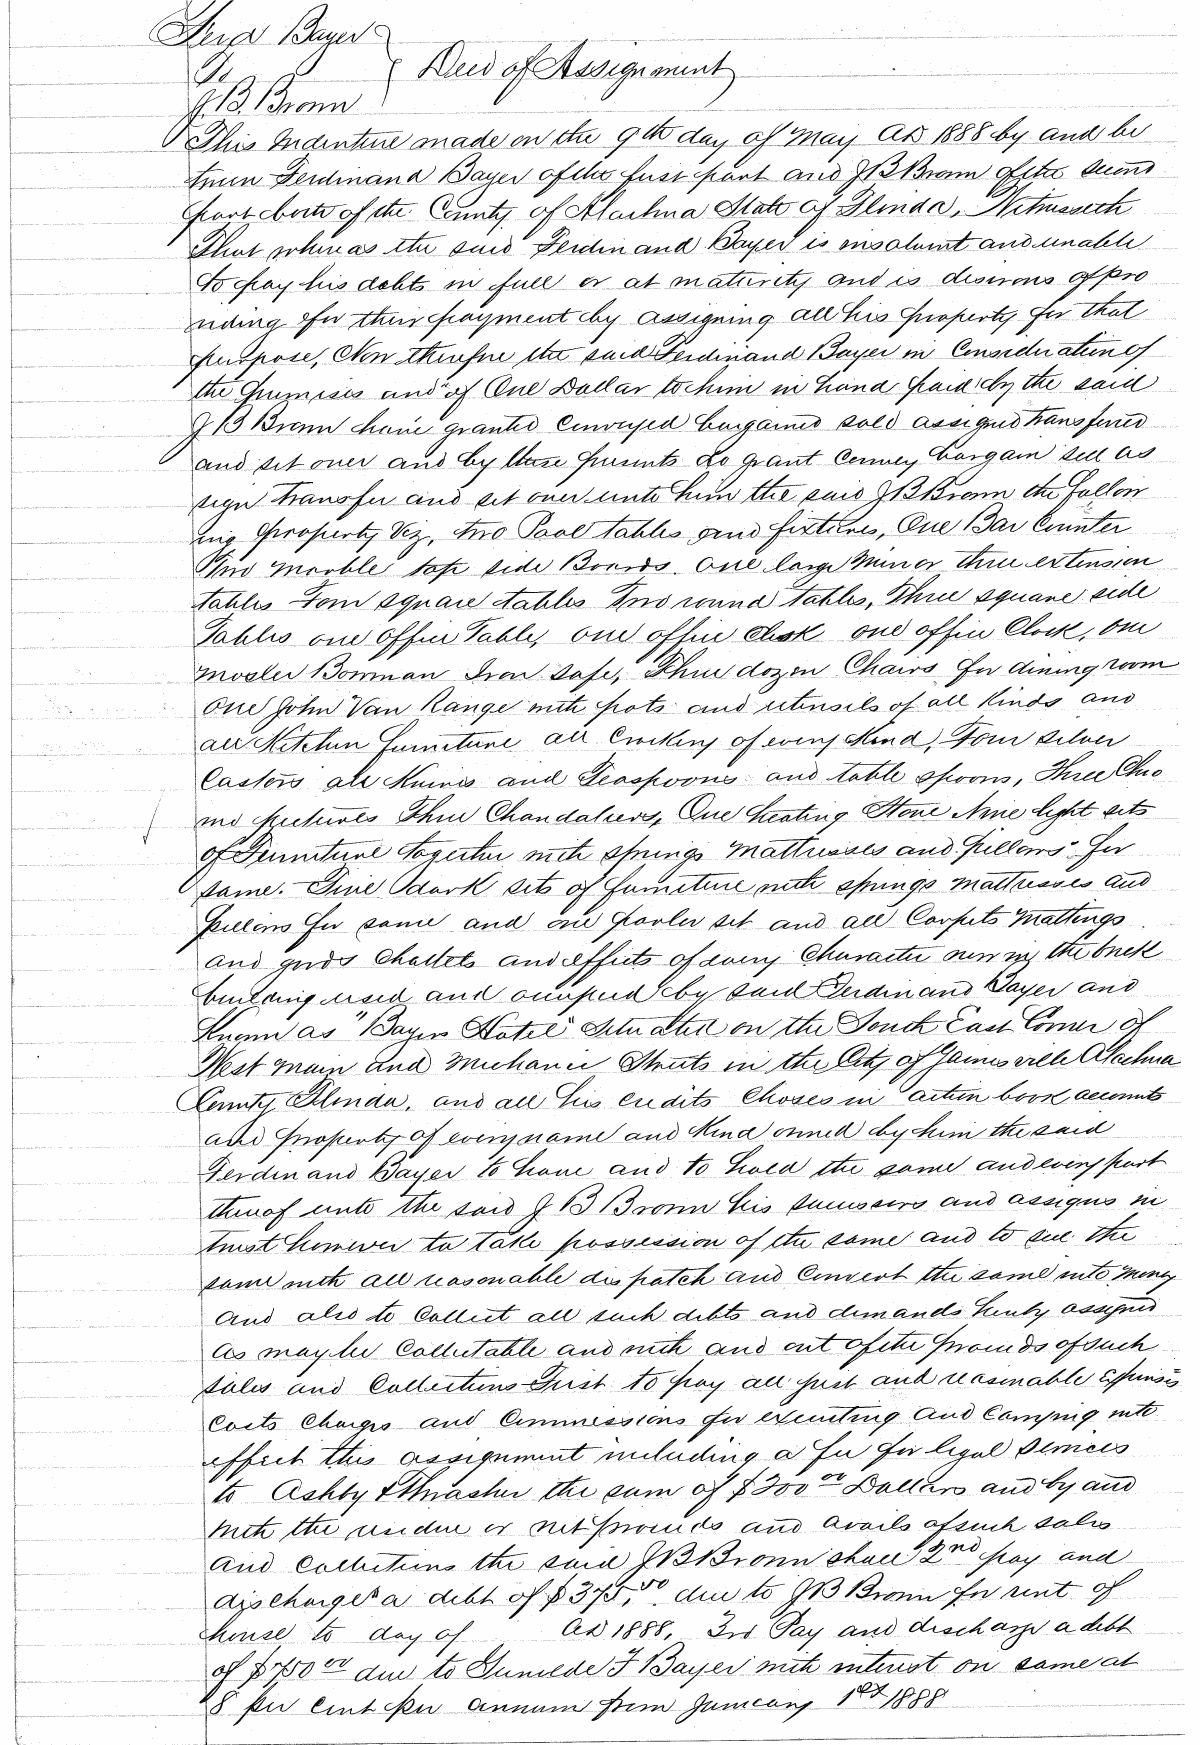 Ferd Bayer
To
Deed of Assignment
J. B. Brown
This Indenture made on the 9th day of May AD 1888 by and be
tween Ferdinand Bayer of the first part and J B Brown of the second
part both of the County of Alachua State of Florida, Witnesseth
That whereas the said Ferdinand Bayer is insolvent and unable
to pay his debts in full or at maturity and is desirous of pro
viding for their payment by assigning all his property for that
purpose, Now therefore the said Ferdinand Bayer in Consideration of
the premises and of One Dollar to him in hand paid by the said
J B Brown have granted Conveyed bargained sold assigned transferred
and set over and by these presents do grant Convey bargain sell as
sign transfer and set over unto him the said J B Brown the follow
ing property Viz, two Pool tables and fixtures, One Bar Counter
Two marble top side Boards. One large Mirror three extension
tables Four square tables Two round tables, Three square side
Tables one office Table, one office desk one office Clock, one
Mosler Bowman Iron safe, Three dozen Chairs for dining room
One John Van Range with pots and utensils of all Kinds and
all Kitchen furniture all Crockery of every Kind, Four silver
Castors all Knives and Teaspoons and table spoons, Three Chro
mo pictures Three Chandaliers, One heating Stove Nine light sets
of Furniture together with springs Mattresses and pillows for
same. Five dark sets of furniture with springs mattresses and
pillows for same and one parlor set and all Carpets Mattings
and goods Chattels and effects of every Character now in the brick
building used and occupied by said Ferdinand Bayer and
Known as "Bayers Hotel" Situated on the South East Corner of
West Main and Mechanic Streets in the City of Gainesville Alachua
County Florida, and all his credits Choses in action book accounts
and property of every name and Kind owned by him the said
Ferdinand Bayer to have and to hold the same and every part
thereof unto the said J B Brown his successors and assigns in
trust however to take possession of the same and to sell the
same with all reasonable dispatch and Convert the same into money
and also to Collect all such debts and demands hereby assigned
as may be Collectable and with and out of the proceeds of such
sales and Collections First to pay all just and reasonable Expenses
Costs Charges and Commissions for executing and Carrying into
effect this assignment including a fee for legal services
to Ashby & Thrasher the sum of $200 00 Dollars and by and
with the residue or net proceeds and avails of such sales
and Collections the said J B Brown shall 2nd pay and
discharge a debt of $375,00 due to J B Brown for rent of
house to day of AD 1888, 3rd Pay and discharge a debt
of $750 00 due to F Bayer with interest on same at
8 per Cent per annum from January 1st 1888